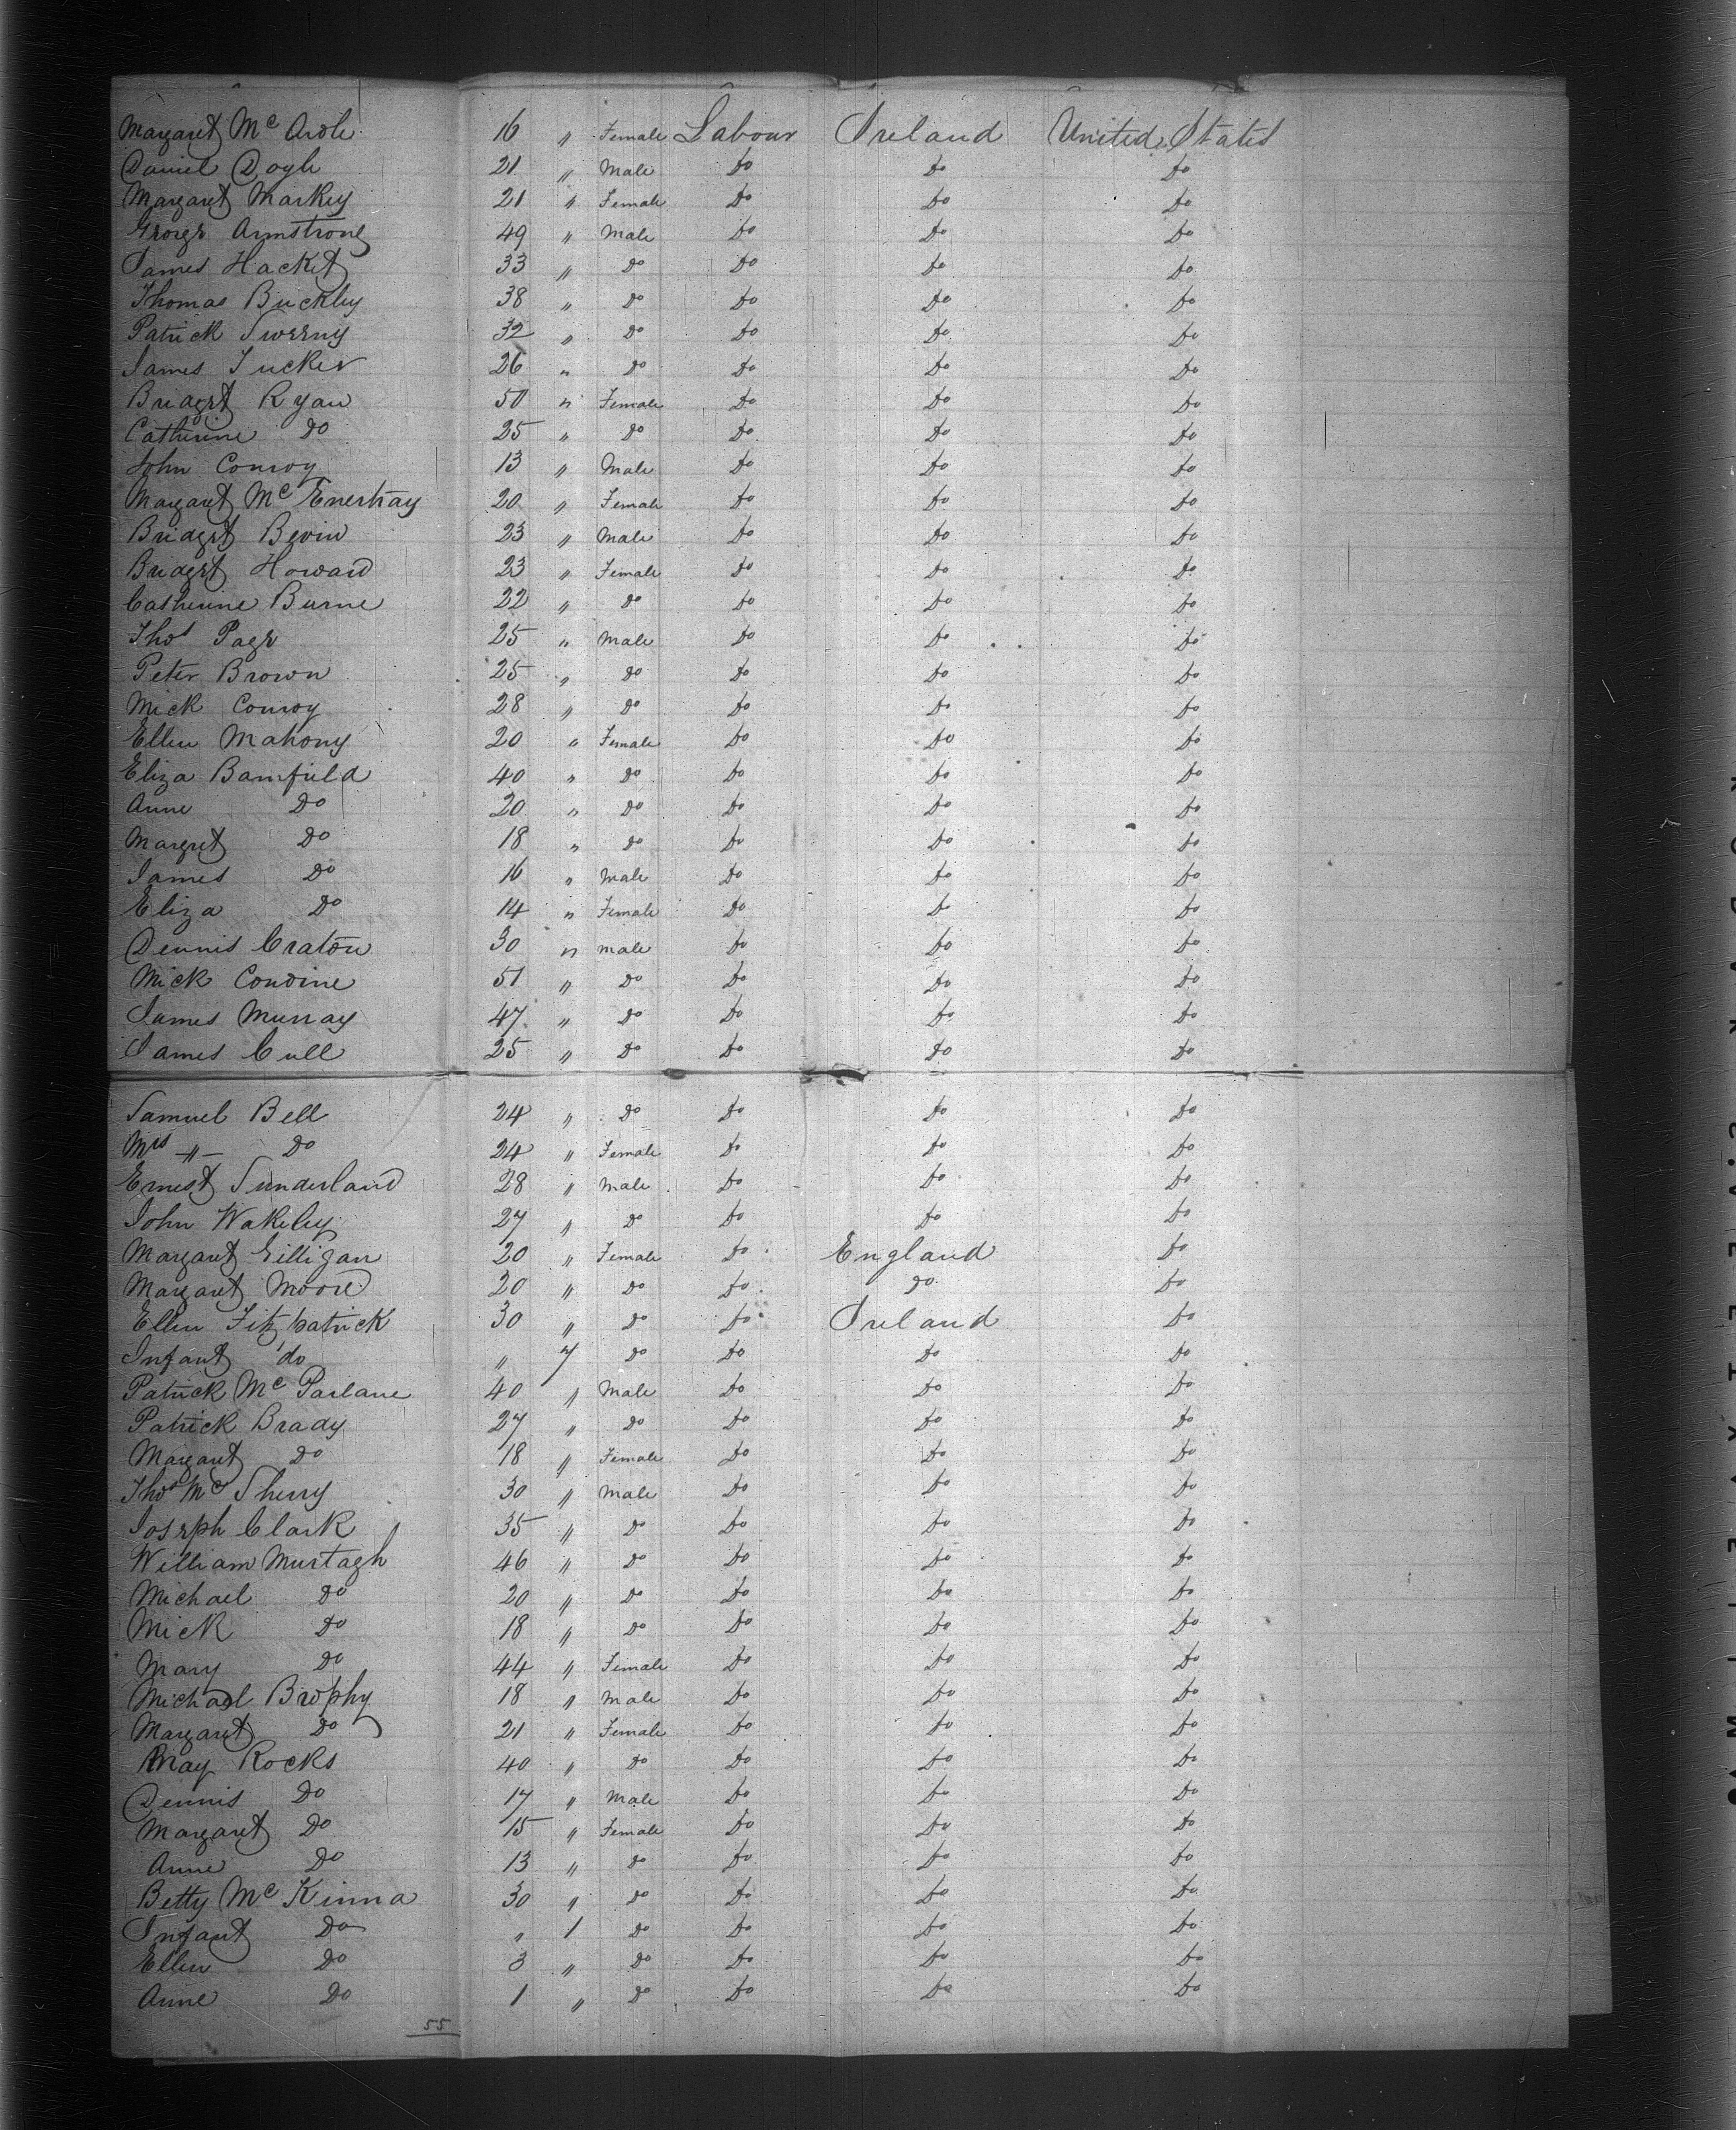 Margaret Mc Ardle 16 " Female Labour Ireland United States
Daniel Dogh 21 " Male Do Do Do
Margaret Markey 21 " Female Do Do Do
George Armstrong 49 " Male Do Do Do
James Hacket 33 " Do Do Do Do
Thomas Buckley 38 " Do Do Do Do
Patrick Sweeny 32 " Do Do Do Do
James Tucker 26 " Do Do Do Do
Bridget Ryan 50 " Female Do Do Do
Catherine Do 25 " Do Do Do Do
John Conroy 13 " Male Do Do Do
Margaret Mc Enerhay 20 " Female Do Do Do
Bridget Bevin 23 " Male Do Do Do
Bridget Howard 23 " Female Do Do Do
Catherine Burne 22 " Do Do Do Do
Thos Page 25 " Male Do Do Do
Peter Brown 25 " Do Do Do Do
Mick Conroy 28 " Do Do Do Do
Ellen Mahony 20 " Female Do Do Do
Eliza Bamfield 40 " Do Do Do Do
Anne Do 20 " Do Do Do Do
Margret Do 18 " Do Do Do Do
James Do 16 " Male Do Do Do
Eliza Do 14 " Female Do Do Do
Dennis Craton 30 " Male Do Do Do
Mick Condine 51 " Do Do Do Do
James Murray 47 " Do Do Do Do
James Cull 25 " Do Do Do Do
Samuel Bell 24 " Do Do Do Do
Mrs -"- Do 24 " Female Do Do Do
Ernest Sunderland 28 " Male Do Do Do
John Wakeley 27 " Do Do Do Do
Margaret Gilligan 20 " Female Do England Do
Margaret Moore 20 " Do Do Do Do
Ellen Fitzpatrick 30 " Do Do Ireland Do
Infant do " 7 Do Do Do Do
Patrick Mc Parlane 40 " Male Do Do Do
Patrick Brady 27 " Do Do Do Do
Margaret Do 18 " Female Do Do Do
Thos Mc Sherry 30 " Male Do Do Do
Joseph Clark 35 " Do Do Do Do
William Murtagh 46 " Do Do Do Do
Michael Do 20 " Do Do Do Do
Mick Do 18 " Do Do Do Do
Mary Do 44 " Female Do Do Do
Michael Brophy 18 " Male Do Do Do
Margaret Do 21 " Female Do Do Do
May Rocks 40 " Do Do Do Do
Dennis Do 17 " Male Do Do Do
Margaret Do 15 " Female Do Do Do
Anne Do 13 " Do Do Do Do
Betty Mc Kinna 30 " Do Do Do Do
Infant Do " 1 Do Do Do Do
Ellen Do 3 " Do Do Do Do
Anne Do 1 " Do Do Do Do
55